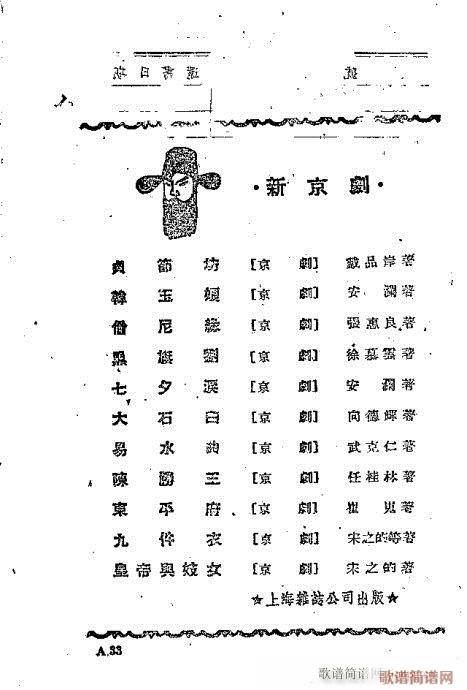 ·新京劇·
貞節坊 [京劇] 戴品岸著
韓玉娘 [京劇] 安瀾著
僧尼緣 [京劇] 張惠良著
黑旗劉 [京劇] 徐慕雲著
七夕淚 [京劇] 安瀾著
大石臼 [京劇] 向德輝著
易水曲 [京劇] 武克仁著
陳勝王 [京劇] 任桂林著
東平府 [京劇] 崔嵬著
九件衣 [京劇] 宋之的等著
皇帝與妓女 [京劇] 宋之的著
★上海雜誌公司出版★
A.33
歌谱简谱网
www.jianpu.cn
歌谱简谱网